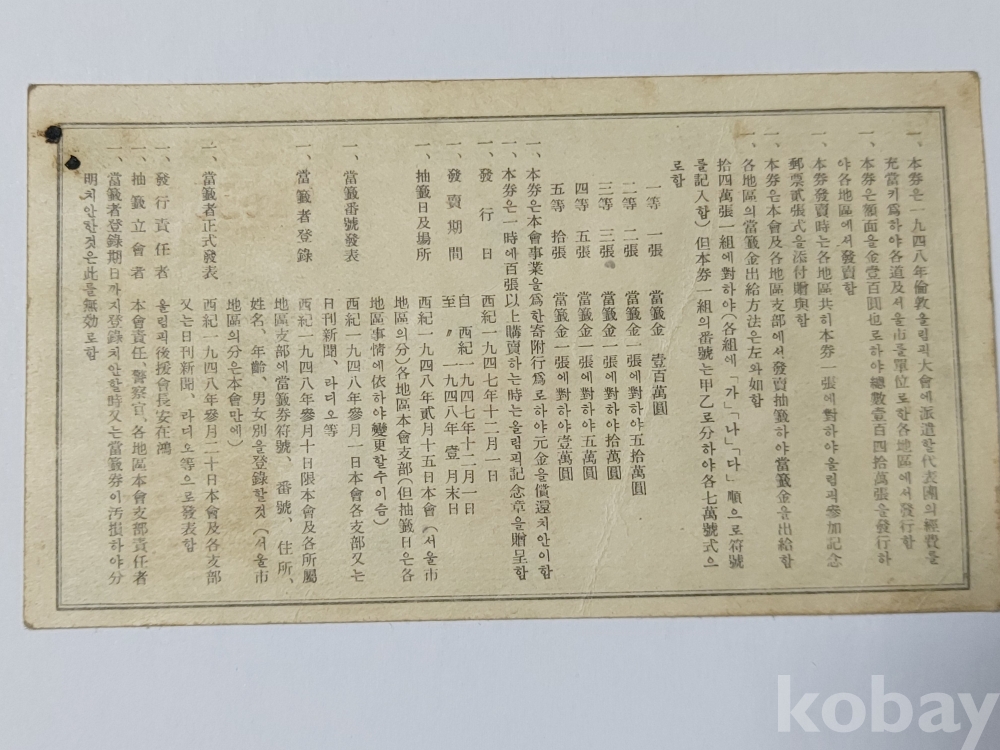 一、本券은一九四八年倫敦올림픽大會에派遣할代表團의經費를
充當키爲하야各道及서울市를單位로한各地區에서發行함
一、本券은額面을金壹百圓也로하야總數壹百四拾萬張을發行하
야各地區에서發賣함
一、本券發賣時는各地區共히本券一張에對하야올림픽參加記念
郵票貳張式을添付贈與함
一、本券은本會及各地區支部에서發賣抽籤하야當籤金을出給함
各地區의當籤金出給方法은左와如함
拾四萬張一組에對하야(各組에「가」「나」「다」順으로符號
를記入함)但本券一組의番號는甲乙로分하야各七萬號式으
로함
一等 一張 當籤金 壹百萬圓
二等 二張 當籤金一張에對하야五拾萬圓
三等 三張 當籤金一張에對하야拾萬圓
四等 五張 當籤金一張에對하야五萬圓
五等 拾張 當籤金一張에對하야壹萬圓
一、本券은本會事業을爲한寄附行爲로하야元金을償還치안이함
一、本券은一時에百張以上購買하는時는올림픽記念章을贈呈함
一、發行日 西紀一九四七年十二月一日
一、發賣期間 自 西紀一九四七年十二月一日
至 〃 一九四八年 壹月末日
一、抽籤日及場所 西紀一九四八年貳月十五日本會(서울市
地區의分)各地區本會支部(但抽籤日은各
地區事情에依하야變更할수이슴)
一、當籤番號發表 西紀一九四八年參月一日本會各支部又는
日刊新聞、라디오等
一、當籤者登錄 西紀一九四八年參月十日限本會及各所屬
地區支部에當籤券符號、番號、住所、
姓名、年齡、男女別을登錄할것(서울市
地區의分은本會만에)
一、當籤者正式發表 西紀一九四八年參月二十日本會及各支部
又는日刊新聞、라디오等으로發表함
一、發行責任者 올림픽後援會長安在鴻
一、抽籤立會者 本會責任、警察官、各地區本會支部責任者
一、當籤者登錄期日까지登錄치안할時又는當籤券이汚損하야分
明치안한것은此를無効로함
kobay